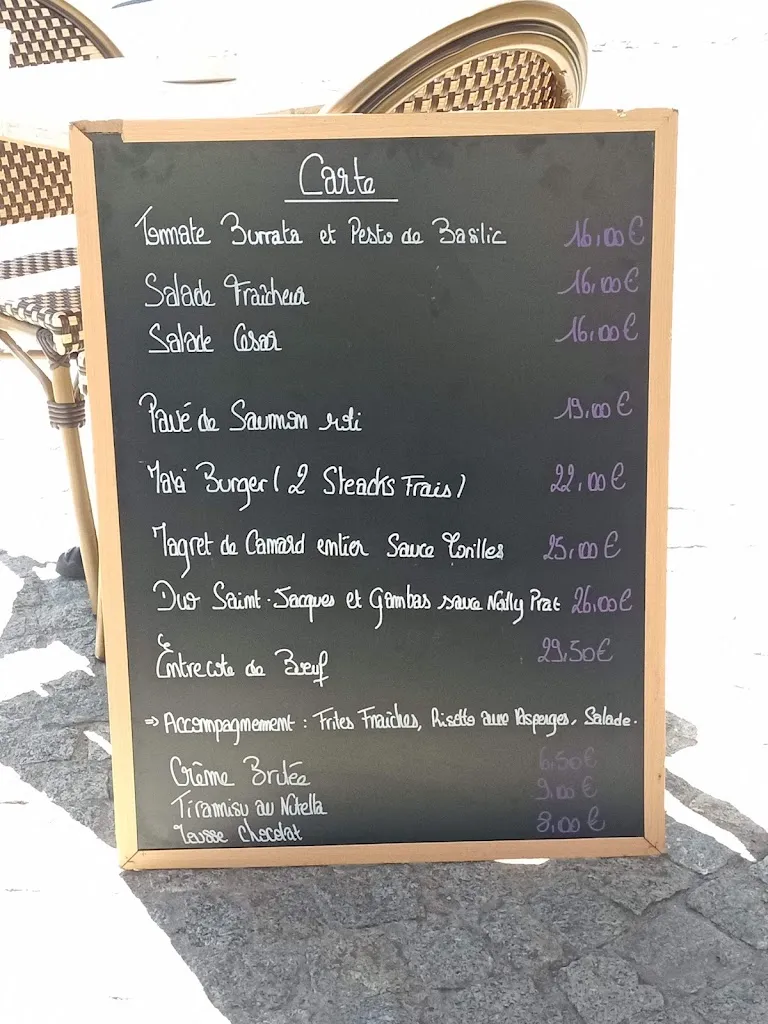 Carte
Tomate Burrata et Pesto de Basilic 16,00€
Salade Fraîcheur 16,00€
Salade César 16,00€
Pavé de Saumon rôti 19,00€
Burger (2 Steacks Frais) 22,00€
Magret de Canard entier Sauce 25,00€
Duo Saint-Jacques et Gambas sauce Noilly Prat 26,00€
Entrecote de Bœuf 29,50€
⇒ Accompagnement : Frites Fraîches, Risotto aux Asperges, Salade.
Crème Brulée 6,50€
Tiramisu au Nutella 9,00€
Mousse Chocolat 8,00€